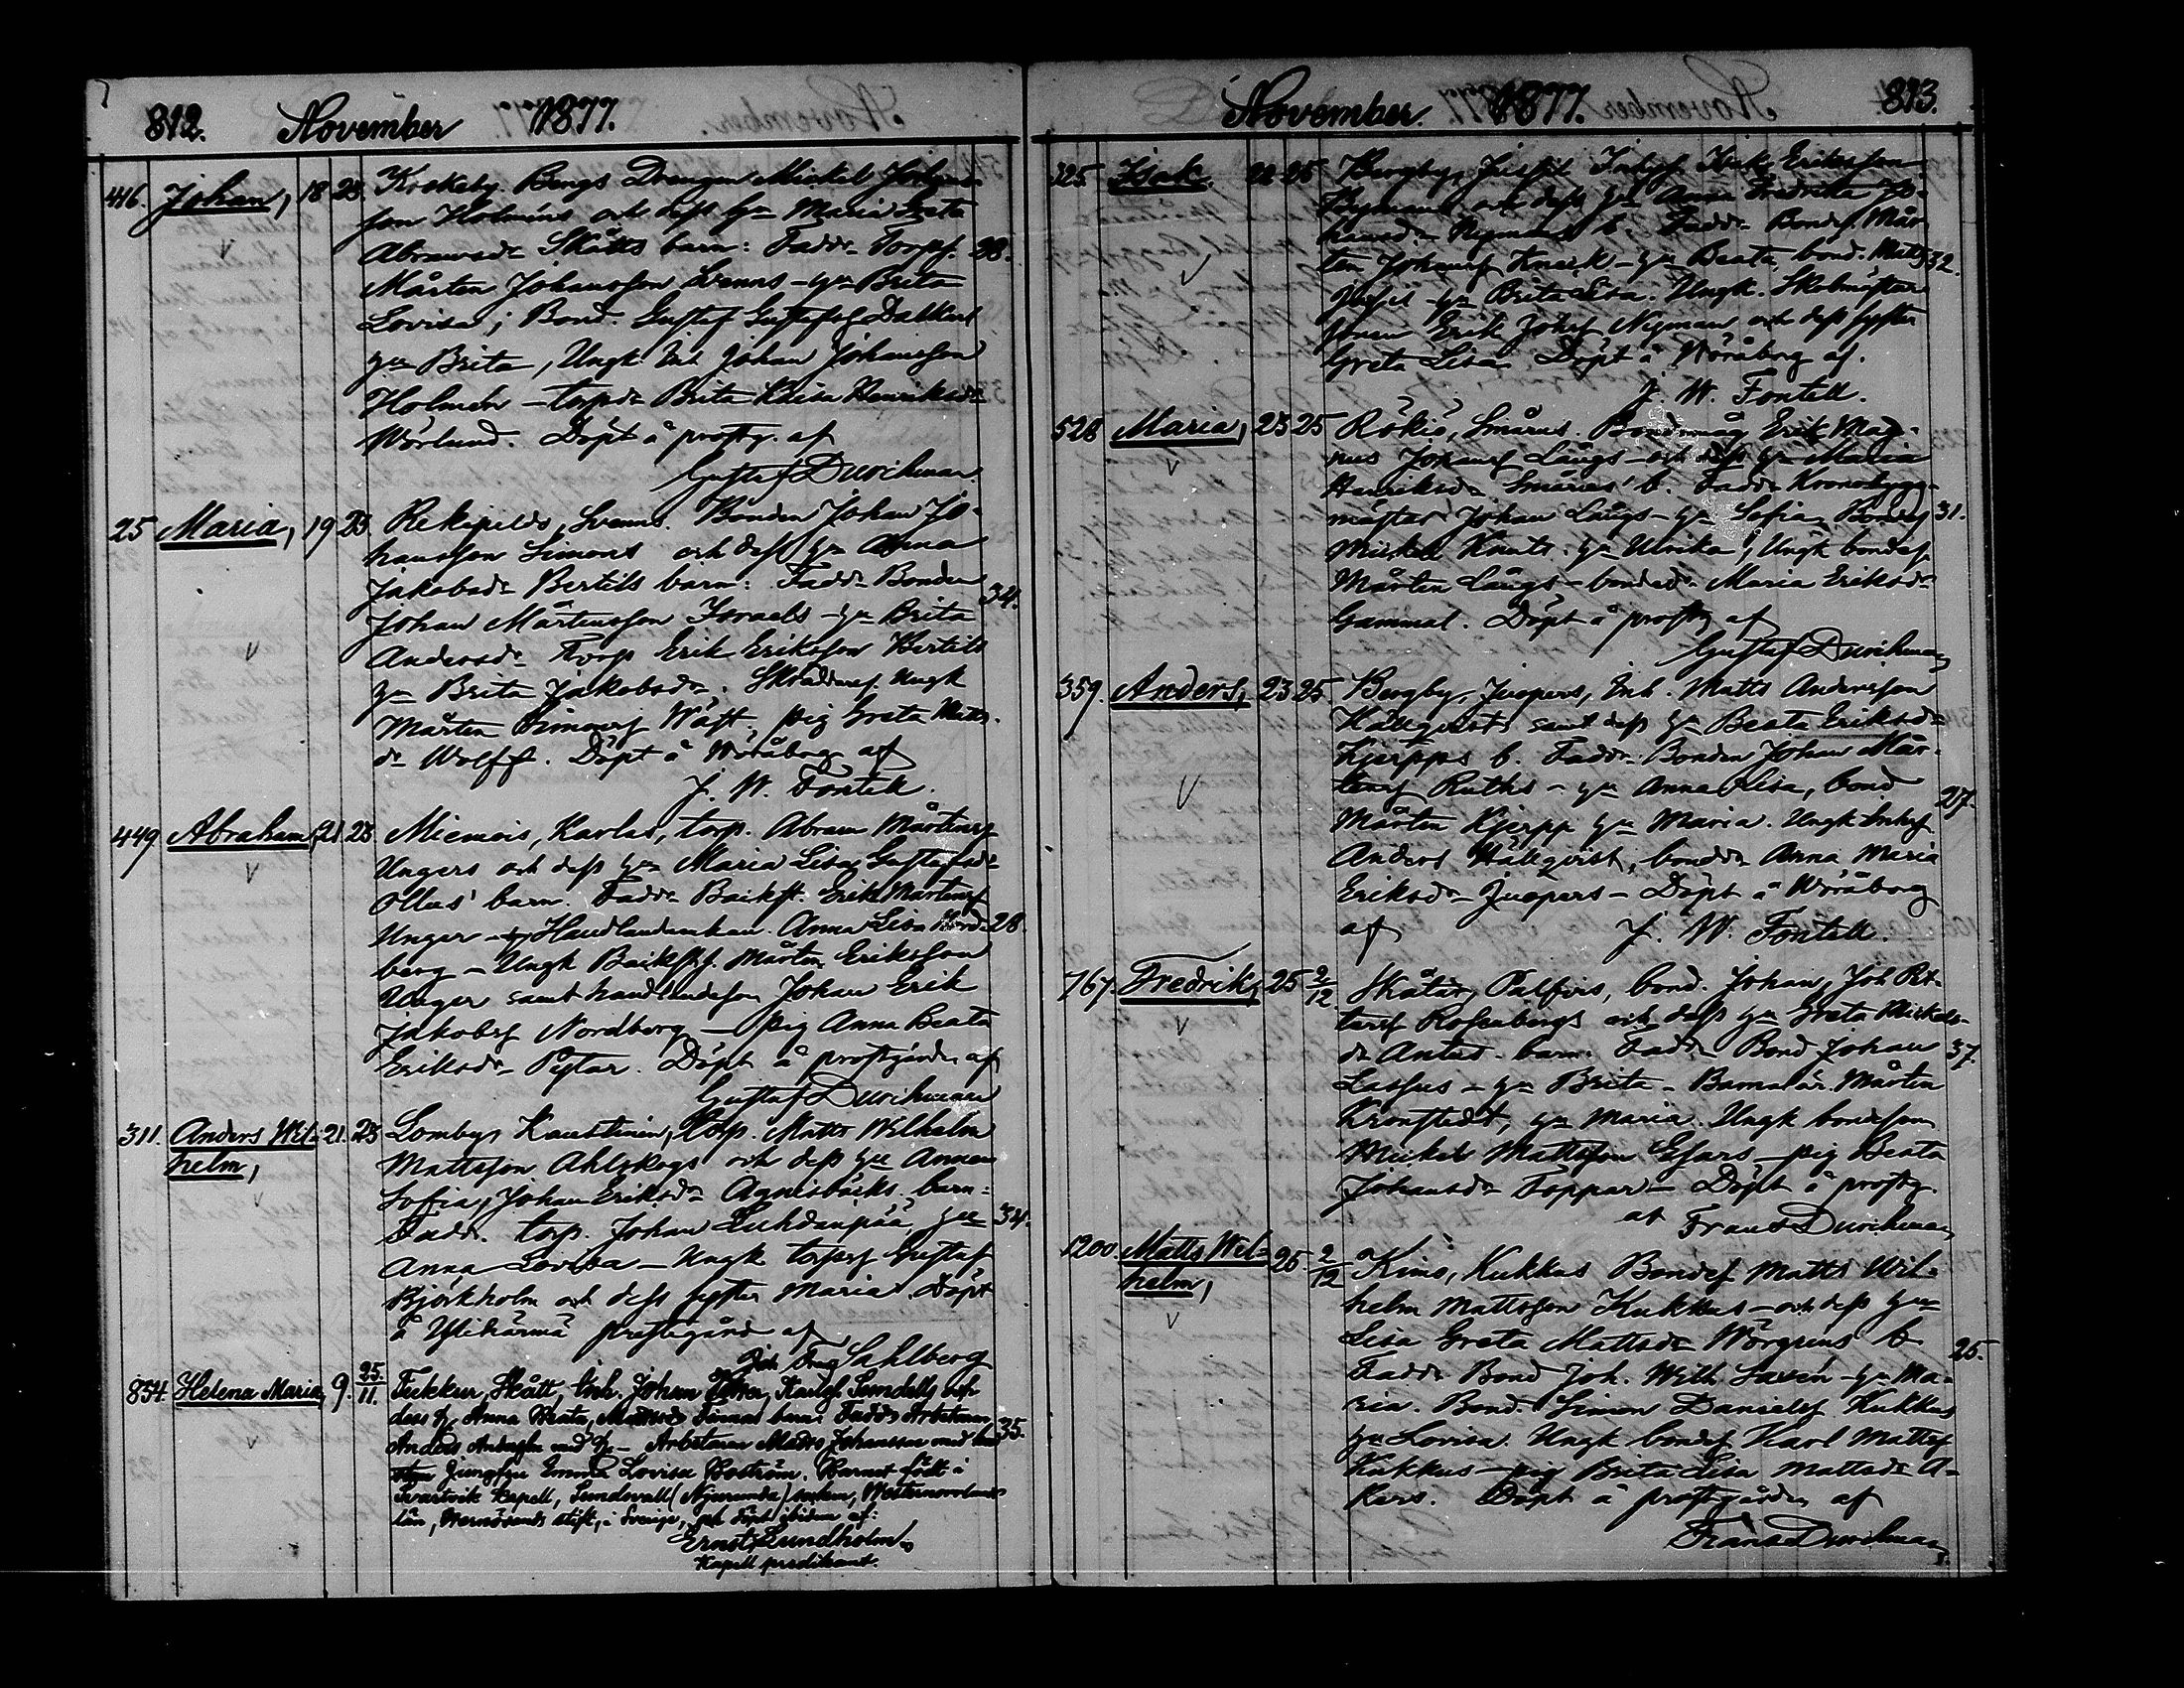 812. November 1877.
446. Johan, 18 23. Krokeby Bengs Drengen Mickel Johans-
son Holméns och dess h:u Maria Greta
Abramsdr Skåtts barn: Faddr Torpf. 28.
Mårten Johansson Svenns – h:u Brita
Lovisa; Bond. Gustaf Gustafss Dalkarl
h:u Brita, Ungk Inh Johan Johansson
Holmén – torpdr Brita Kaisa Henriksdr
Wörlund. Döpt å prostg. af
Gustaf Durchman.
25 Maria, 19 23. Rekipelds, Svenns. Bonden Johan Jo-
hansson Simons och dess h:u Anna
Jakobsdr Bertils barn: Faddr Bonden 34.
Johan Mårtensson Israels – h:u Brita
Andersdr Torp Erik Eriksson Bertils
h:u Brita Jakobsdr. Skräddaref Ungk
Mårten Simonss Wäst, pig Greta Matts-
dr Wolff. Döpt å Wöråborg af
J. W. Fontell.
449 Abraham, 21. 23 Miemois, Karlas, torp. Abram Mårtenss
Ungers och dess h:u Maria Lisa Gustafsdr
Ollus' barn. Faddr Backst. Erik Mårtenss
Unger – Handlandenkan Anna Lisa Nord- 28.
berg – Ungk Backstf. Mårten Eriksson
Unger samt handlandeson Johan Erik
Jakobss Nordberg – pig Anna Beata
Eriksdr Pistar. Döpt å prostgården af
Gustaf Durchman
311. Anders Wil- 21. 23 Lomby, Kaustinen, torp. Matts Wilhelm
helm, Mattsson Ahlskogs och dess h:u Anna
Sofia, Johan Eriksdr Agnisbäcks barn:
Faddr. torp. Johan Luhdanpää, h:u 34.
Anna Lovisa – Ungk torpf Gustaf
Björkholm och dess syster Maria. Döpt
å Ylihärmä prestegård af
Joh Sahlberg
854. Helena Maria, 9. 25./11. Tuckur, Skått, Inh. Johan Karlss Sundells och
dess h., Anna Beata, Mattsdr Finnas barn: Faddr Arbetaren
Anders med h. – Arbetaren Matts Johansson med 35.
Jungfru Emma Lovisa Boström. Barnet född i
Svartvik kapell, Sundsvall (Njurunda) socken, Westernorrlands
län, Hernösands stift, i Sverige, och döpt ibidem af:
Ernst Lundholm.
Kapell predikant.
November 1877. 813.
325. Isak. 22 25 Bergby, Jussil Inhys Erik Eriksson
Nymans och dess h:u Anna Fredrika Jo-
hansdr Nymans b. Faddr Bondf. Mår-
ten Johanss Knuck – h:u Beata, bond. Matts 32.
Jussil – h:u Brita Lisa. Ungk. Skolmästare
sonen Erik Johss Nyman, och dess syster
Greta Lisa Döpt å Wöråborg af.
J. W. Fontell.
528 Maria, 23 25 Rökiö, Smårus. Bondmåg Erik Mag-
nus Johanss Långs – och dess h:u Maria
Henriksdr Smårus' b. Faddr Kronobygg-
mästar Johan Långs – h:u Sofia, Bondf 31.
Mickel Knuts. h:u Ulrika, Ungk bondef
Mårten Långs – bondedr Maria Eriksdr
Gammal. Döpt å prostg af
Gustaf Durchman
359. Anders, 23 25. Bergby, Juopers, Inh. Matts Andersson
Hällqvists samt dess h:u Beata Eriksdr
Kjerpps b. Faddr Bonden Johan Mår-
tenss Ruths – h:u Anna Lisa, bond 27.
Mårten Kjerpp h:u Maria. Ungk Inhf.
Anders Hällqvist, bonddr Anna Maria
Eriksdr Juopers – Döpt å Wöråborg
af J. W. Fontell.
767. Fredrik, 25 2/12 Skåtär, Palfvis, bond. Johan, Joh Pet-
terss Rosenbergs och dess h:u Greta Mickels-
dr Antus barn. Faddr Bond Johan 37.
Lassus – h:u Brita – Barnalär. Mårten
Kronstedt, h:u Maria. Ungk bondeson
Mickel Mattsson Esars – pig Beata
Johansdr Toppar – Döpt å prostg.
af Frans Durchman
1200. Matts Wil- 25. 2/12 Kimo, Kukkus Bondef Matts Wil-
helm, helm Mattsson Kukkus – och dess h:u
Lisa Greta Mattsdr Wörgrens b. 25.
Faddr. Bond Joh. Wilh Savén – h:u Ma-
ria. Bond Simon Danielss Kukkus
h:u Lovisa. Ungk bondef Karl Mattss
Kukkus – pig Brita Lisa Mattsdr A-
kers. Döpt å prostgården af
Frans Durchman